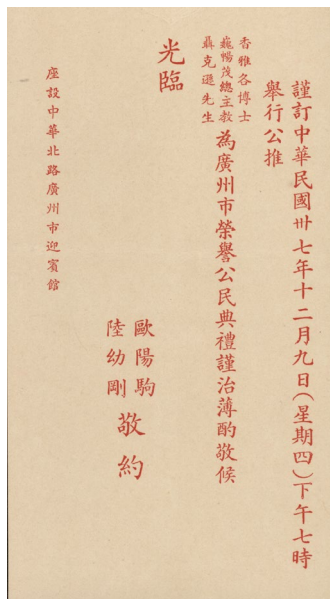 謹訂中華民國卅七年十二月九日(星期四)下午七時
舉行公推
香雅各博士
龐暢茂總主教
聶克遜先生
為廣州市榮譽公民典禮謹治薄酌敬候
光臨
歐陽駒
陸幼剛
敬約
座設中華北路廣州市迎賓館